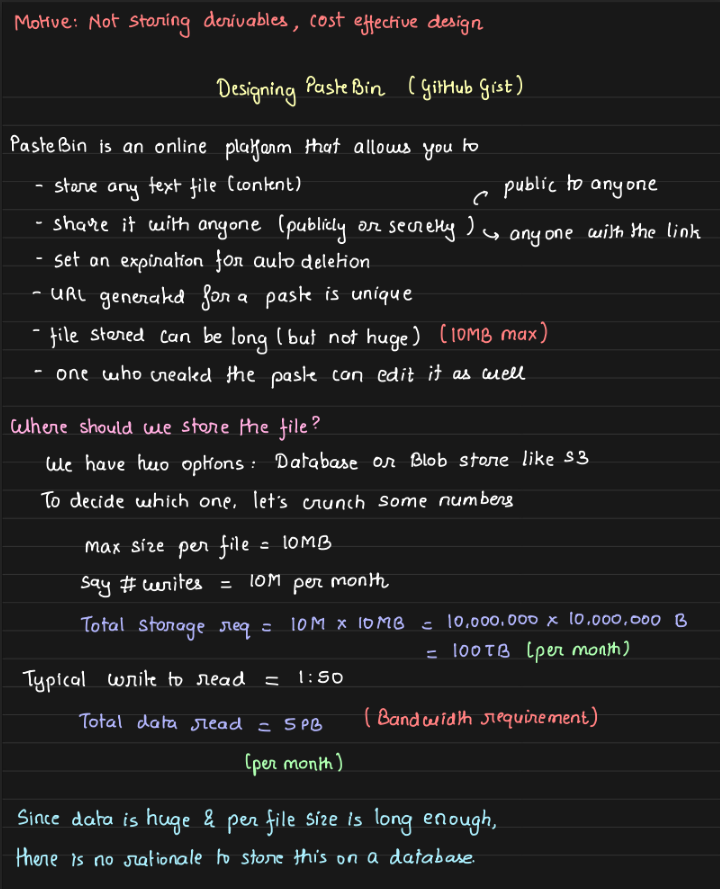 Motive: Not storing derivables, cost effective design
Designing PasteBin (GitHub Gist)
PasteBin is an online platform that allows you to
- store any text file (content)
public to anyone
- share it with anyone (publicly or secretly)
anyone with the link
- set an expiration for auto deletion
- URL generated for a paste is unique
- file stored can be long (but not huge) (10MB max)
- one who created the paste can edit it as well
Where should we store the file?
We have two options: Database or Blob store like S3
To decide which one, let's crunch some numbers
max size per file = 10MB
say # writes = 10M per month
Total storage req = 10M x 10MB = 10,000,000 x 10,000,000 B
= 100TB (per month)
Typical write to read = 1:50
Total data read = 5PB (Bandwidth requirement)
(per month)
Since data is huge & per file size is long enough,
there is no rationale to store this on a database.